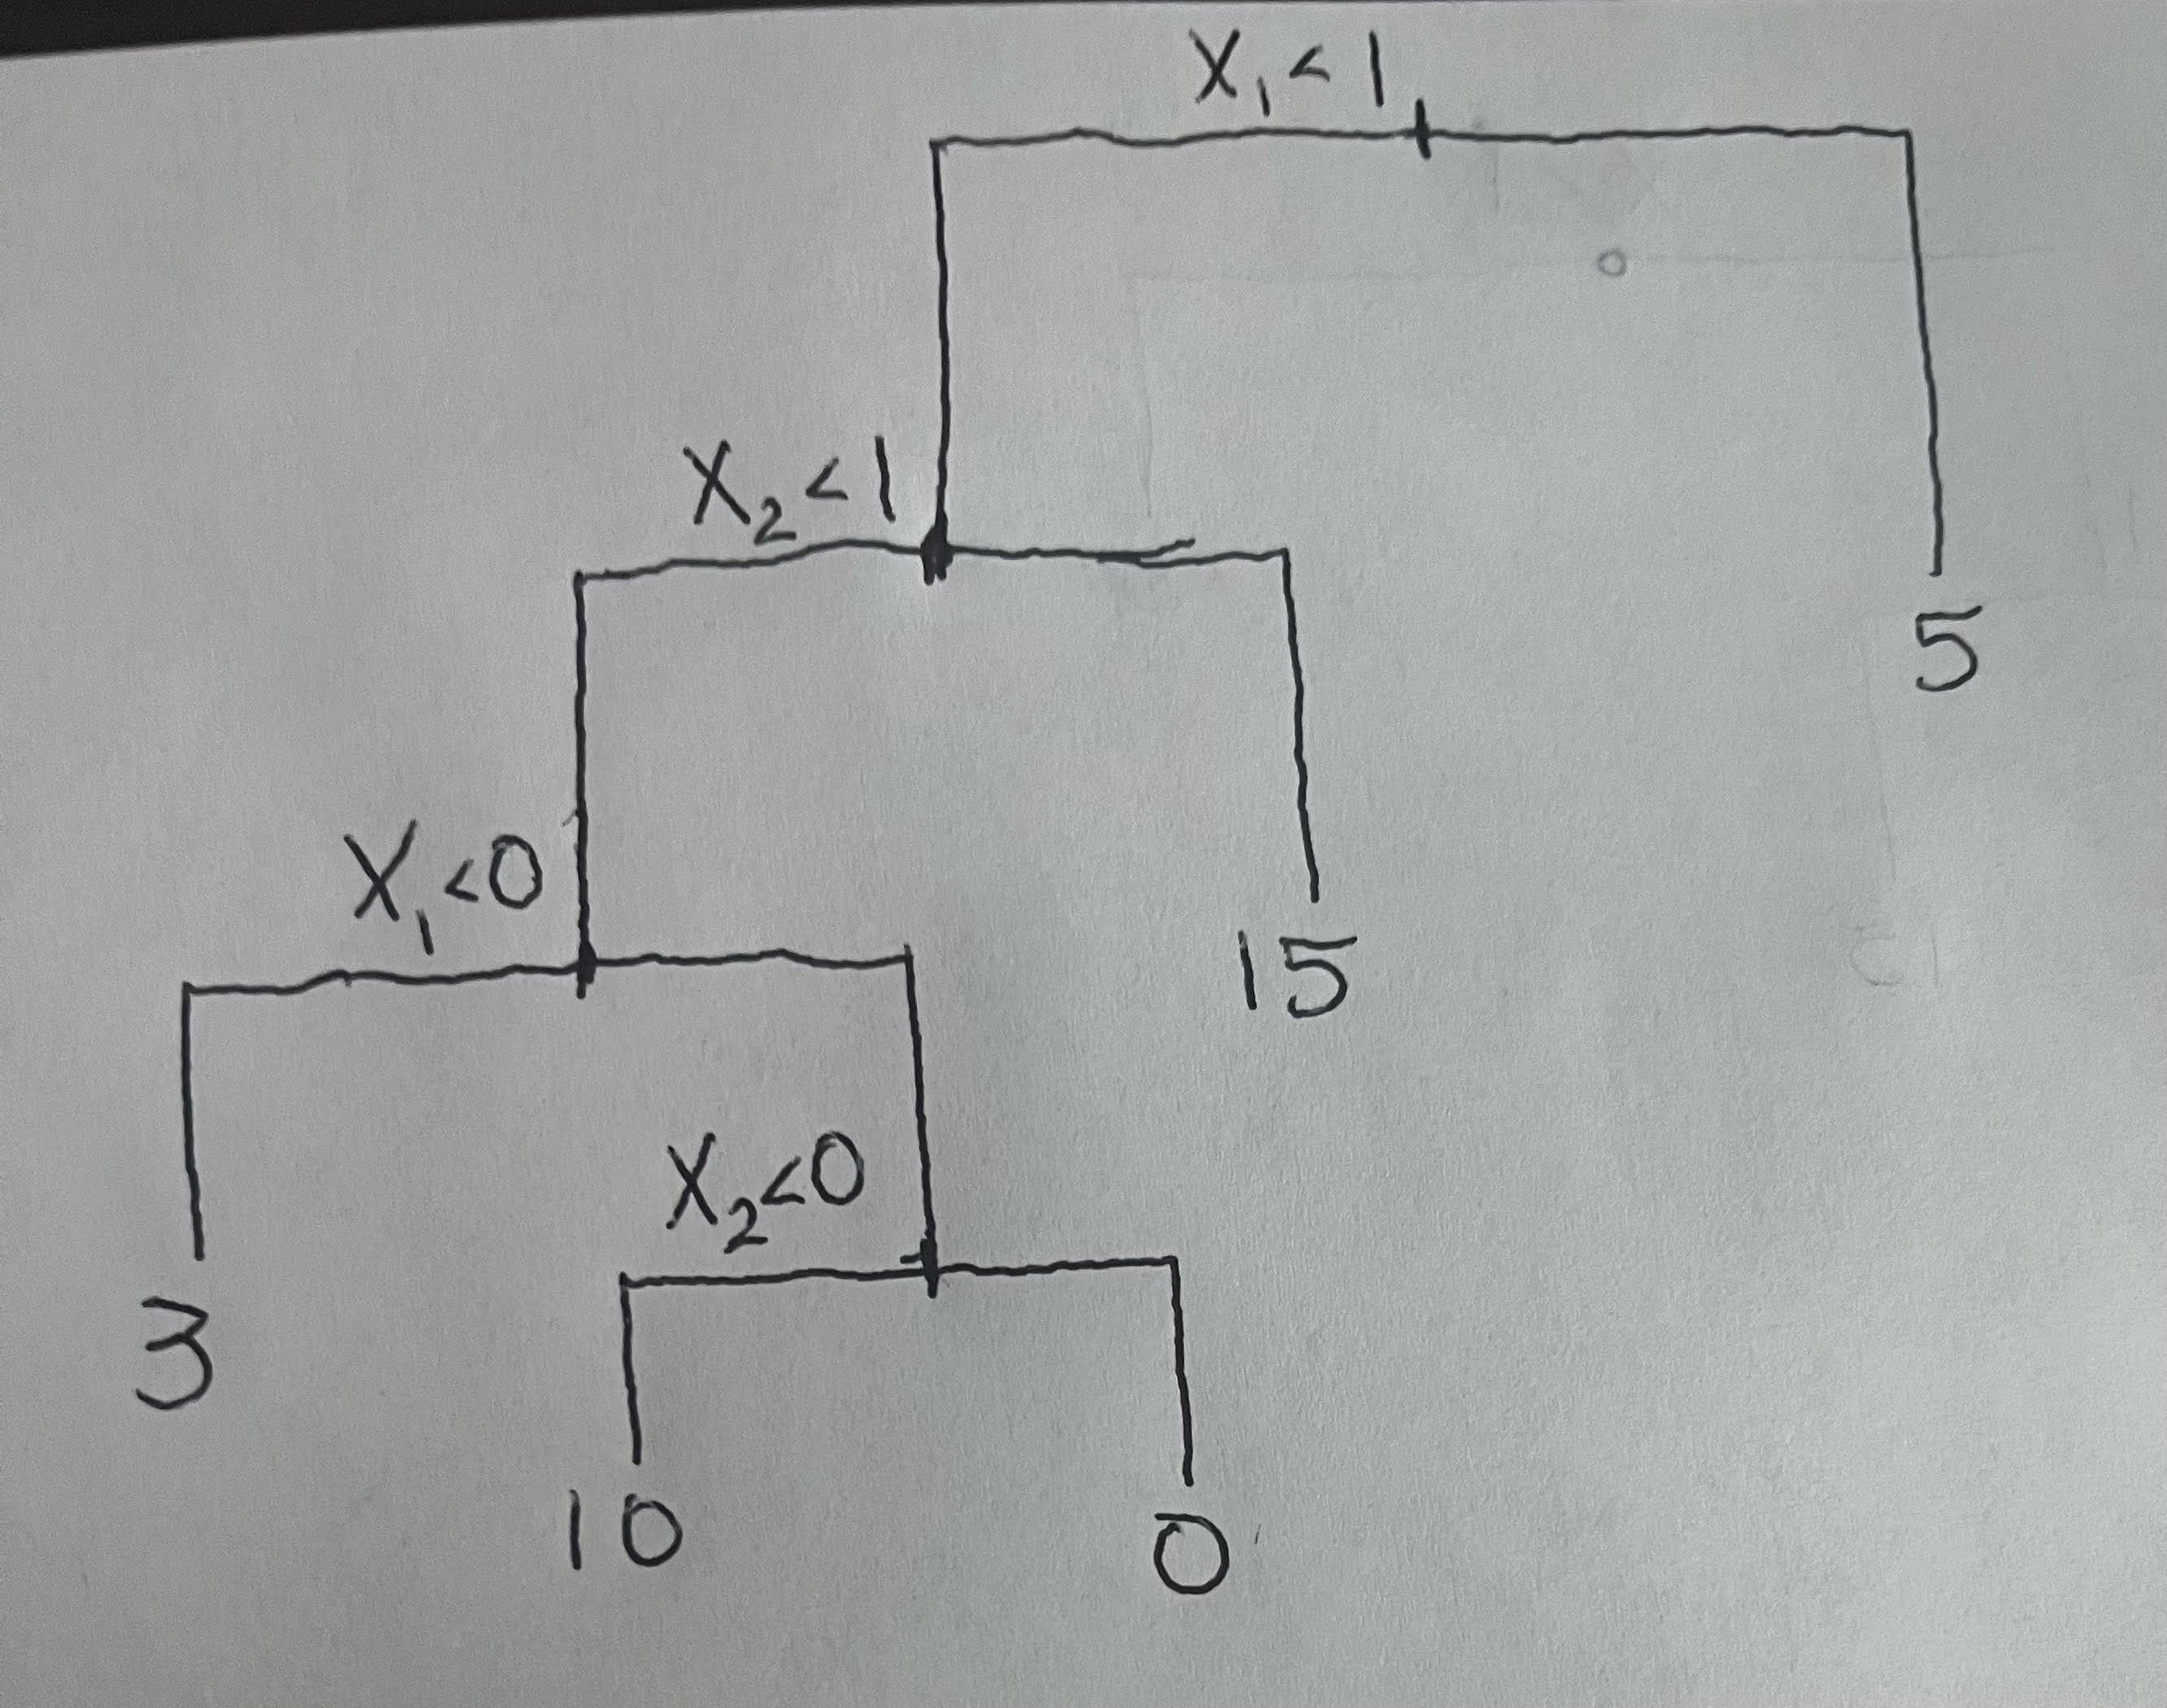 X₁<1
X₂<1
5
X₁<0
15
X₂<0
3
10
0